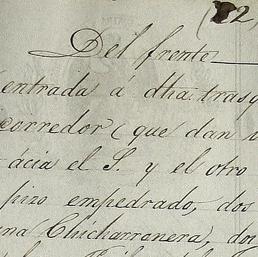 (2,
Del frente
entrada á dha. tras
corredor (que dan
ácia el S. y el otro
pizo empedrado, dos
na Chicharronera), do